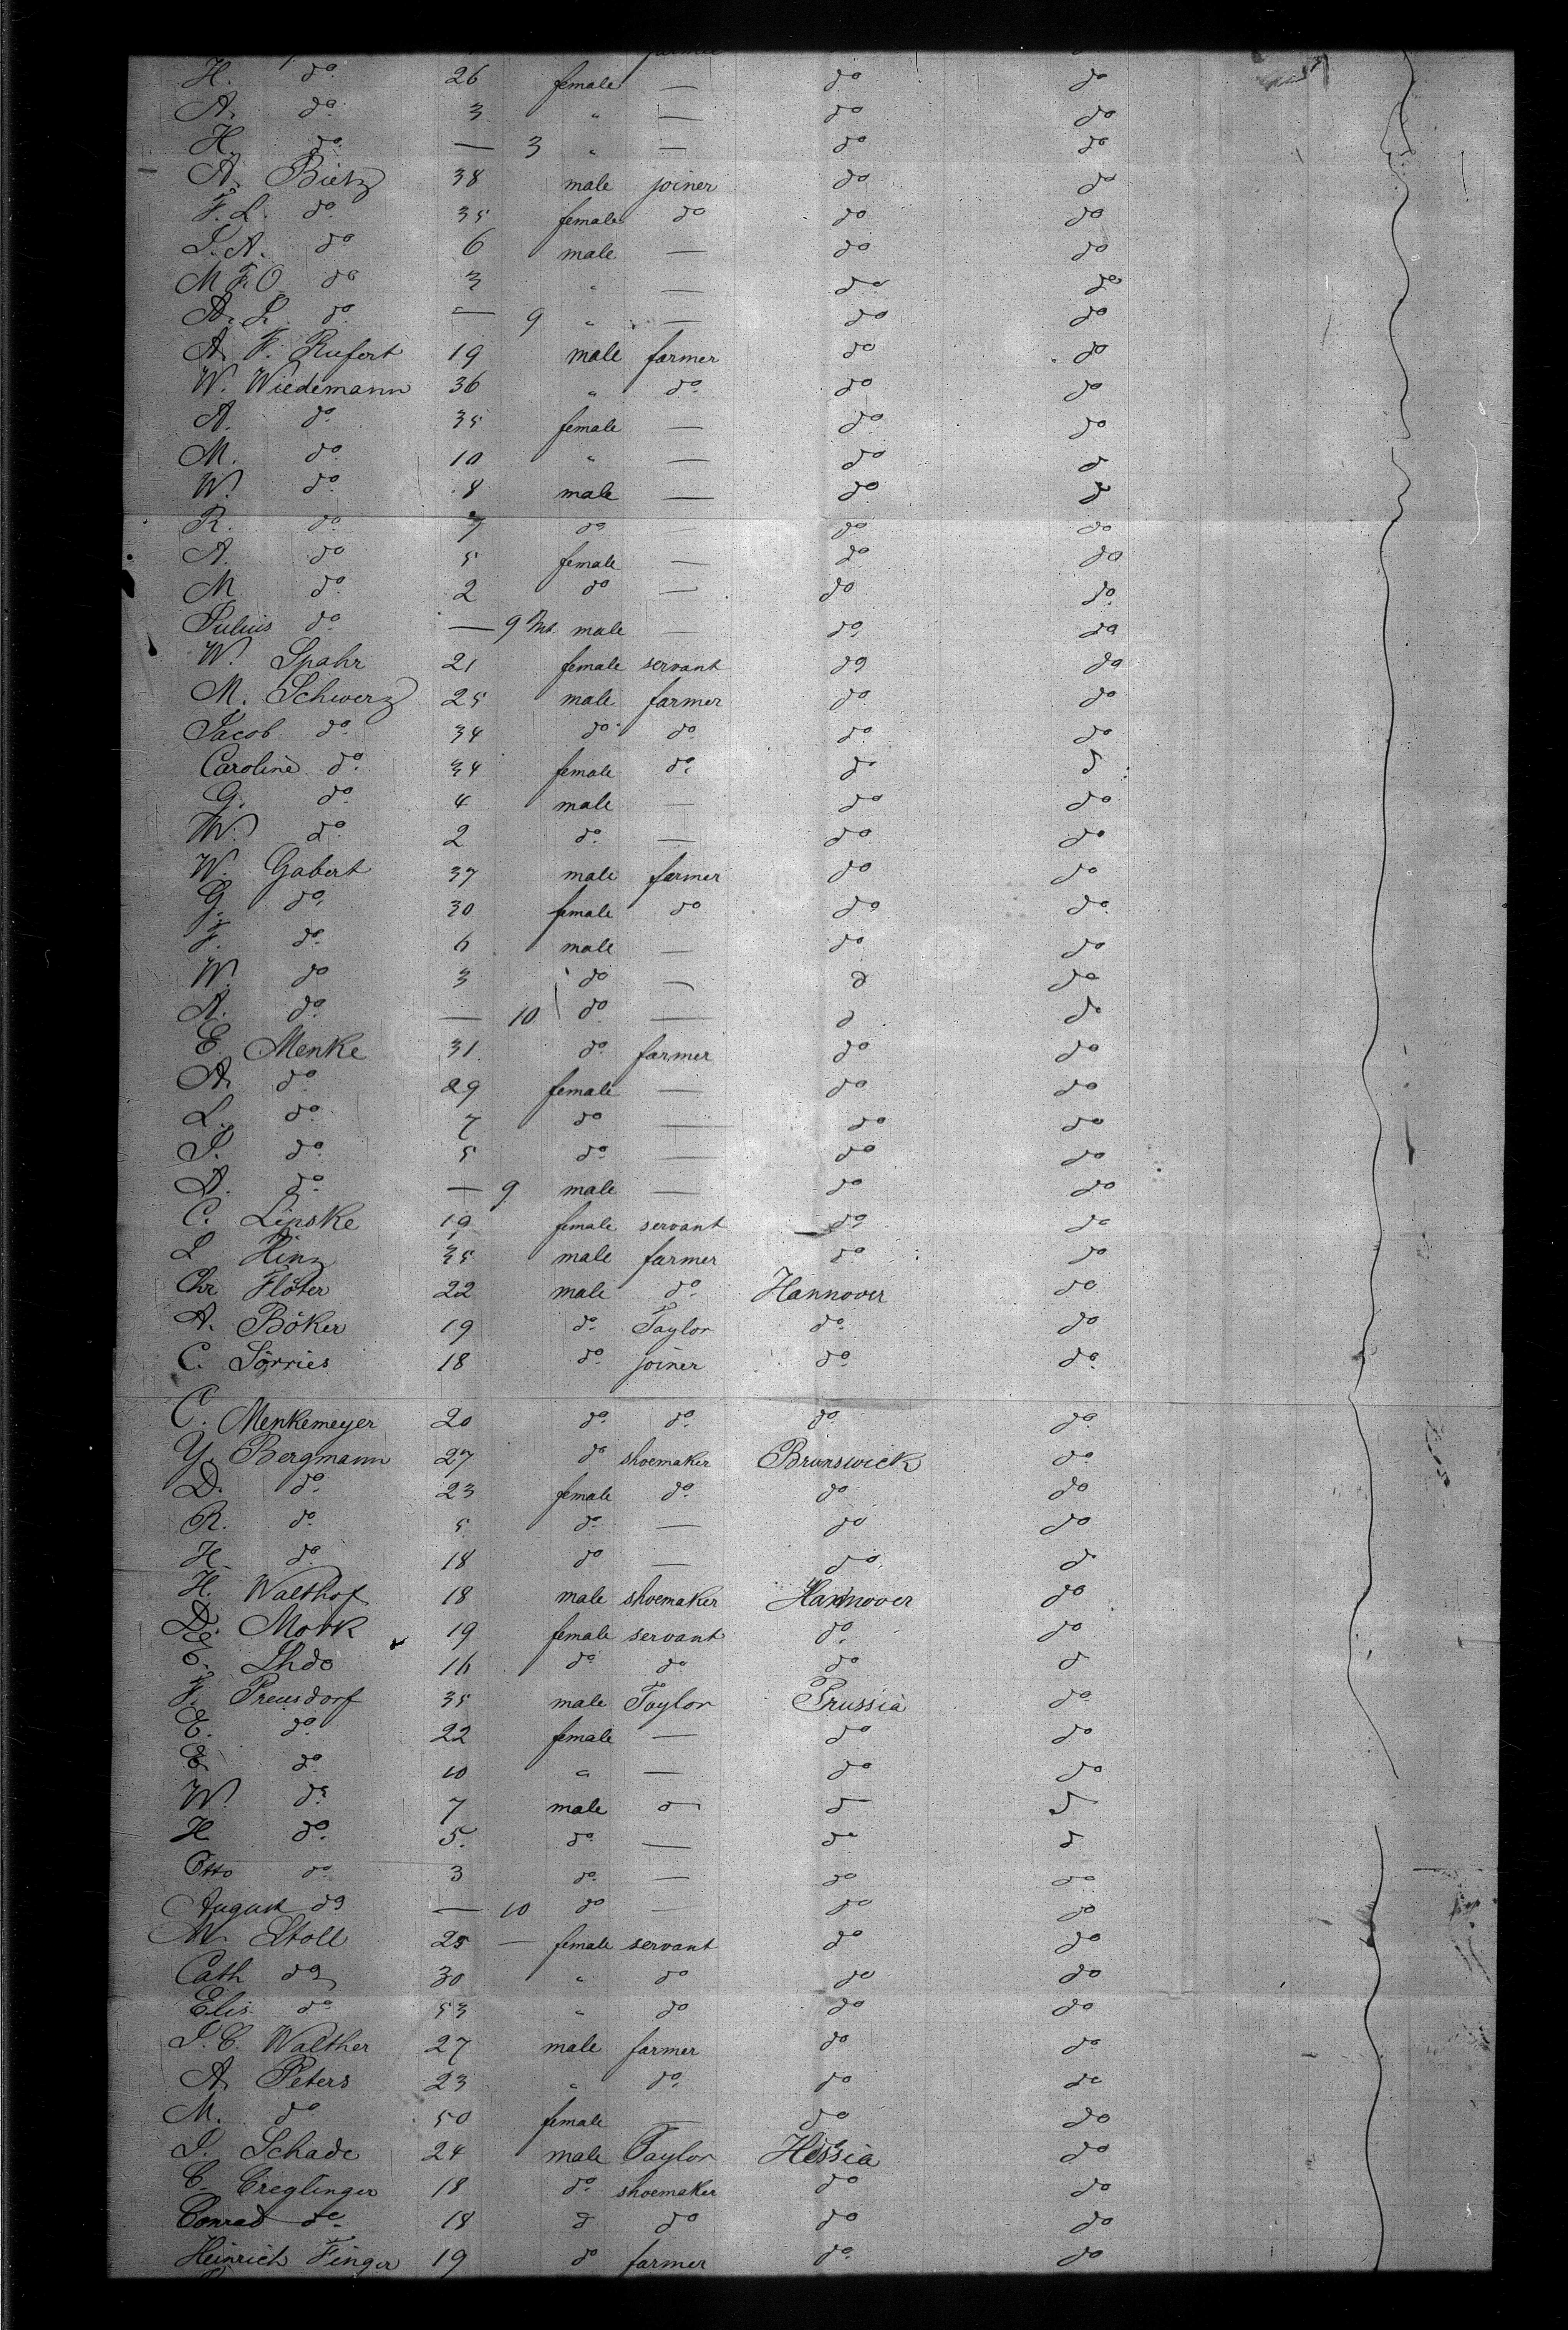 H. do. 26 female — do do
A. do. 3 " — do do
H. do. — 3 " — do do
A. Bietz 38 male joiner do do
F. L. do. 35 female do do do
J. A. do 6 male — do do
M F. O. do 3 " — do. do
A. L. do. — 9 " — do do
A. F. Rufert 19 male farmer do do
W. Wiedemann 36 " do. do do
A. do. 35 female — do do
M. do. 10 " — do d
W. do. 8 male — do d
R. do. 7 do — do do
A. do 5 female — do do
M do. 2 do — do do.
Julius do. — 9 Mt. male — do. do
W. Spahr 21 female servant do do
M. Schwerz 25 male farmer do. do
Jacob do. 34 do. do. do. do
Caroline do. 34 female do. do d
G. do. 4 male — do do
W. do. 2 do. — do do
W. Gabert 37 male farmer do do
G. do. 30 female do do do.
F. do. 6 male — do do
W. do 3 do — d do
A. do. — 10 do. — d do
E. Menke 31 do. farmer do do
A. do. 29 female — do do
L. do. 7 do — do do
J. do. 5 do. — do do
A. do. — 9 male — do do
C. Lipske 19 female servant do do
L Hinz 35 male farmer do do
Chr. Flöter 22 male do. Hannover do
A. Böker 19 do. Taylor do. do
C. Sörries 18 do. joiner do. do.
C. Menkemeyer 20 do. do. do. do.
Y. Bergmann 27 do shoemaker Brunswick do.
D. do. 23 female do. do do
R. do. 5 do. — do do
H. do. 18 do — do. d
H. Walthof 18 male shoemaker Hannover do
D. Mork 19 female servant do. do
E. Ihdo 16 do do. do d
F. Preusdorf 35 male Taylor Prussia do
E. do. 22 female — do do
E. do. 10 " — do do
W. do. 7 male d d d
H do. 5. do. — do d
Otto do 3 do. — do do
August do — 10 do — do do
M. Stoll 25 — female servant do do
Cath do 30 " do do do
Elis. do 53 " do do do
J. C. Walther 27 male farmer do do
A. Peters 23 " do. do do
M. do 50 female — do do
J. Schade 24 male Taylor Hessia do
C. Creglinger 18 do. shoemaker do do
Conrad do. 18 d do do do
Heinrich Finger 19 do farmer do. do